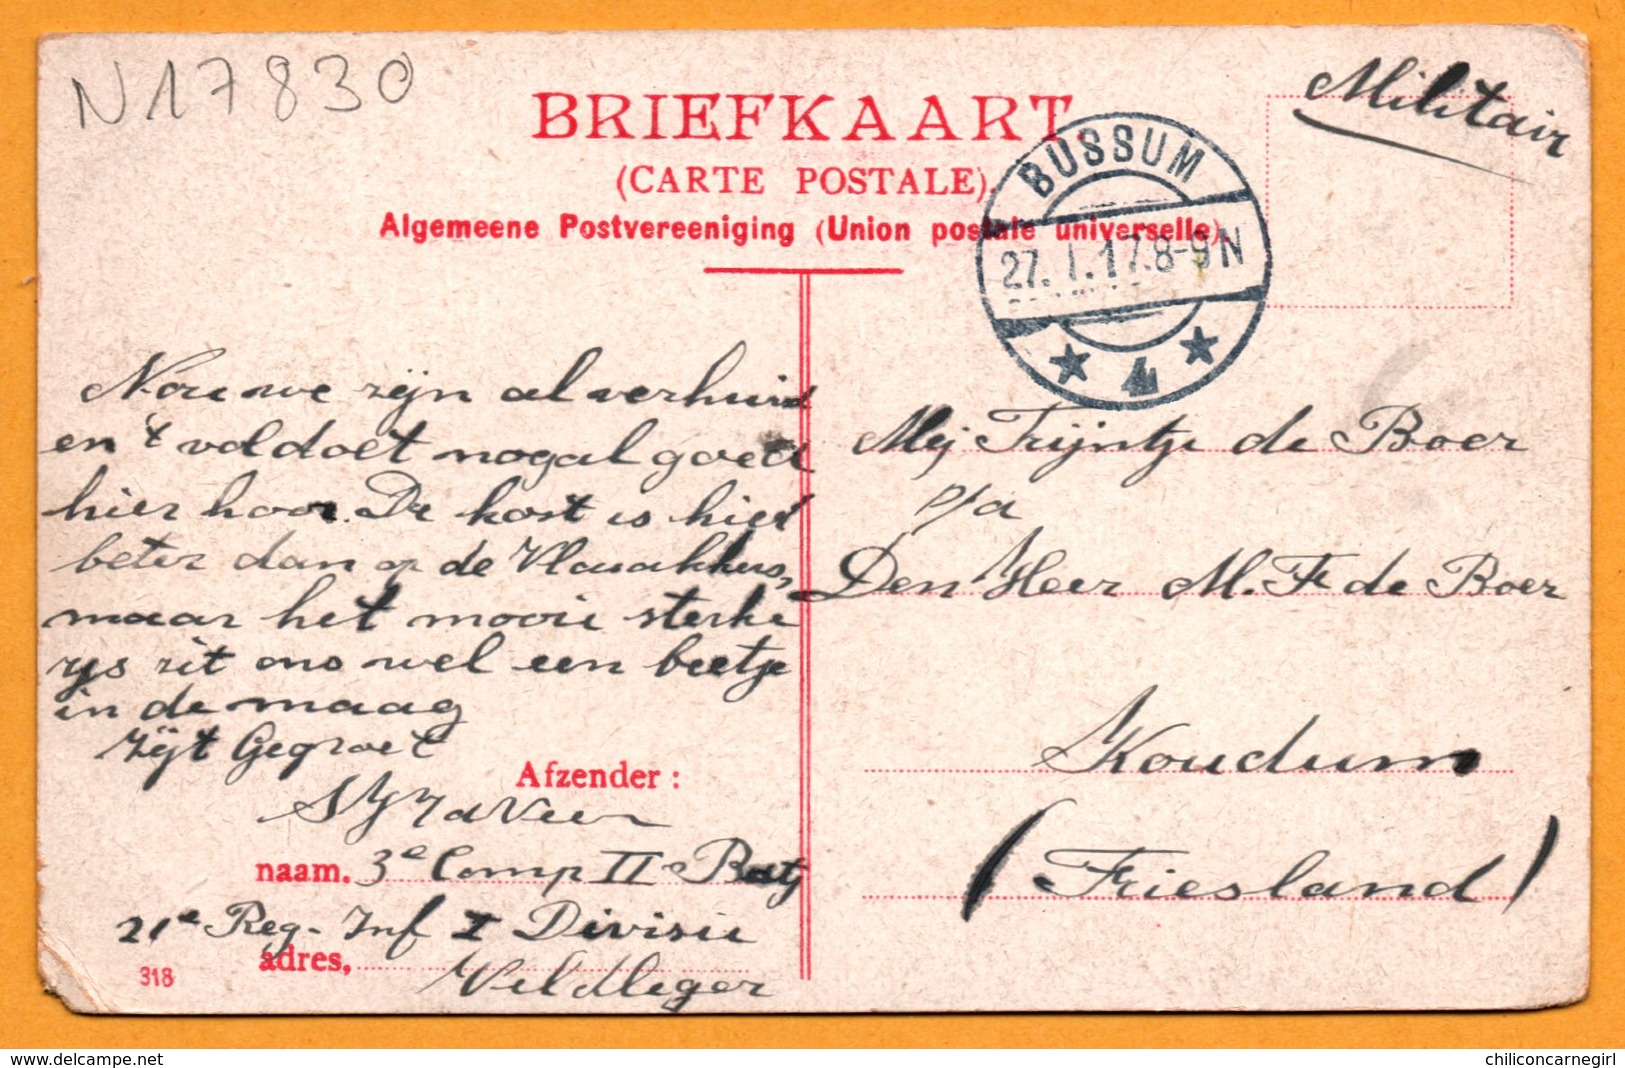 N17830
BRIEFKAART.
(CARTE POSTALE).
Algemeene Postvereeniging (Union postale universelle).
Militair
BUSSUM
27.1.17.8-9N
4
Nou we zijn al verhuisd
en 't voldoet nogal goed
hier hoor. De kost is hier
beter dan op de Vlasakkers,
maar het mooie sterke
ys zit ons wel een beetje
in de maag
Zijt Gegroet
Afzender:
vd Veen
naam. 3e Comp II Bat
21e Reg. Inf I Divisie
adres, Veldleger
318
Mej Trijntje de Boer
p/a
Den Heer M. Fr de Boer
Koudum
(Friesland)
chiliconcarnegirl
www.delcampe.net